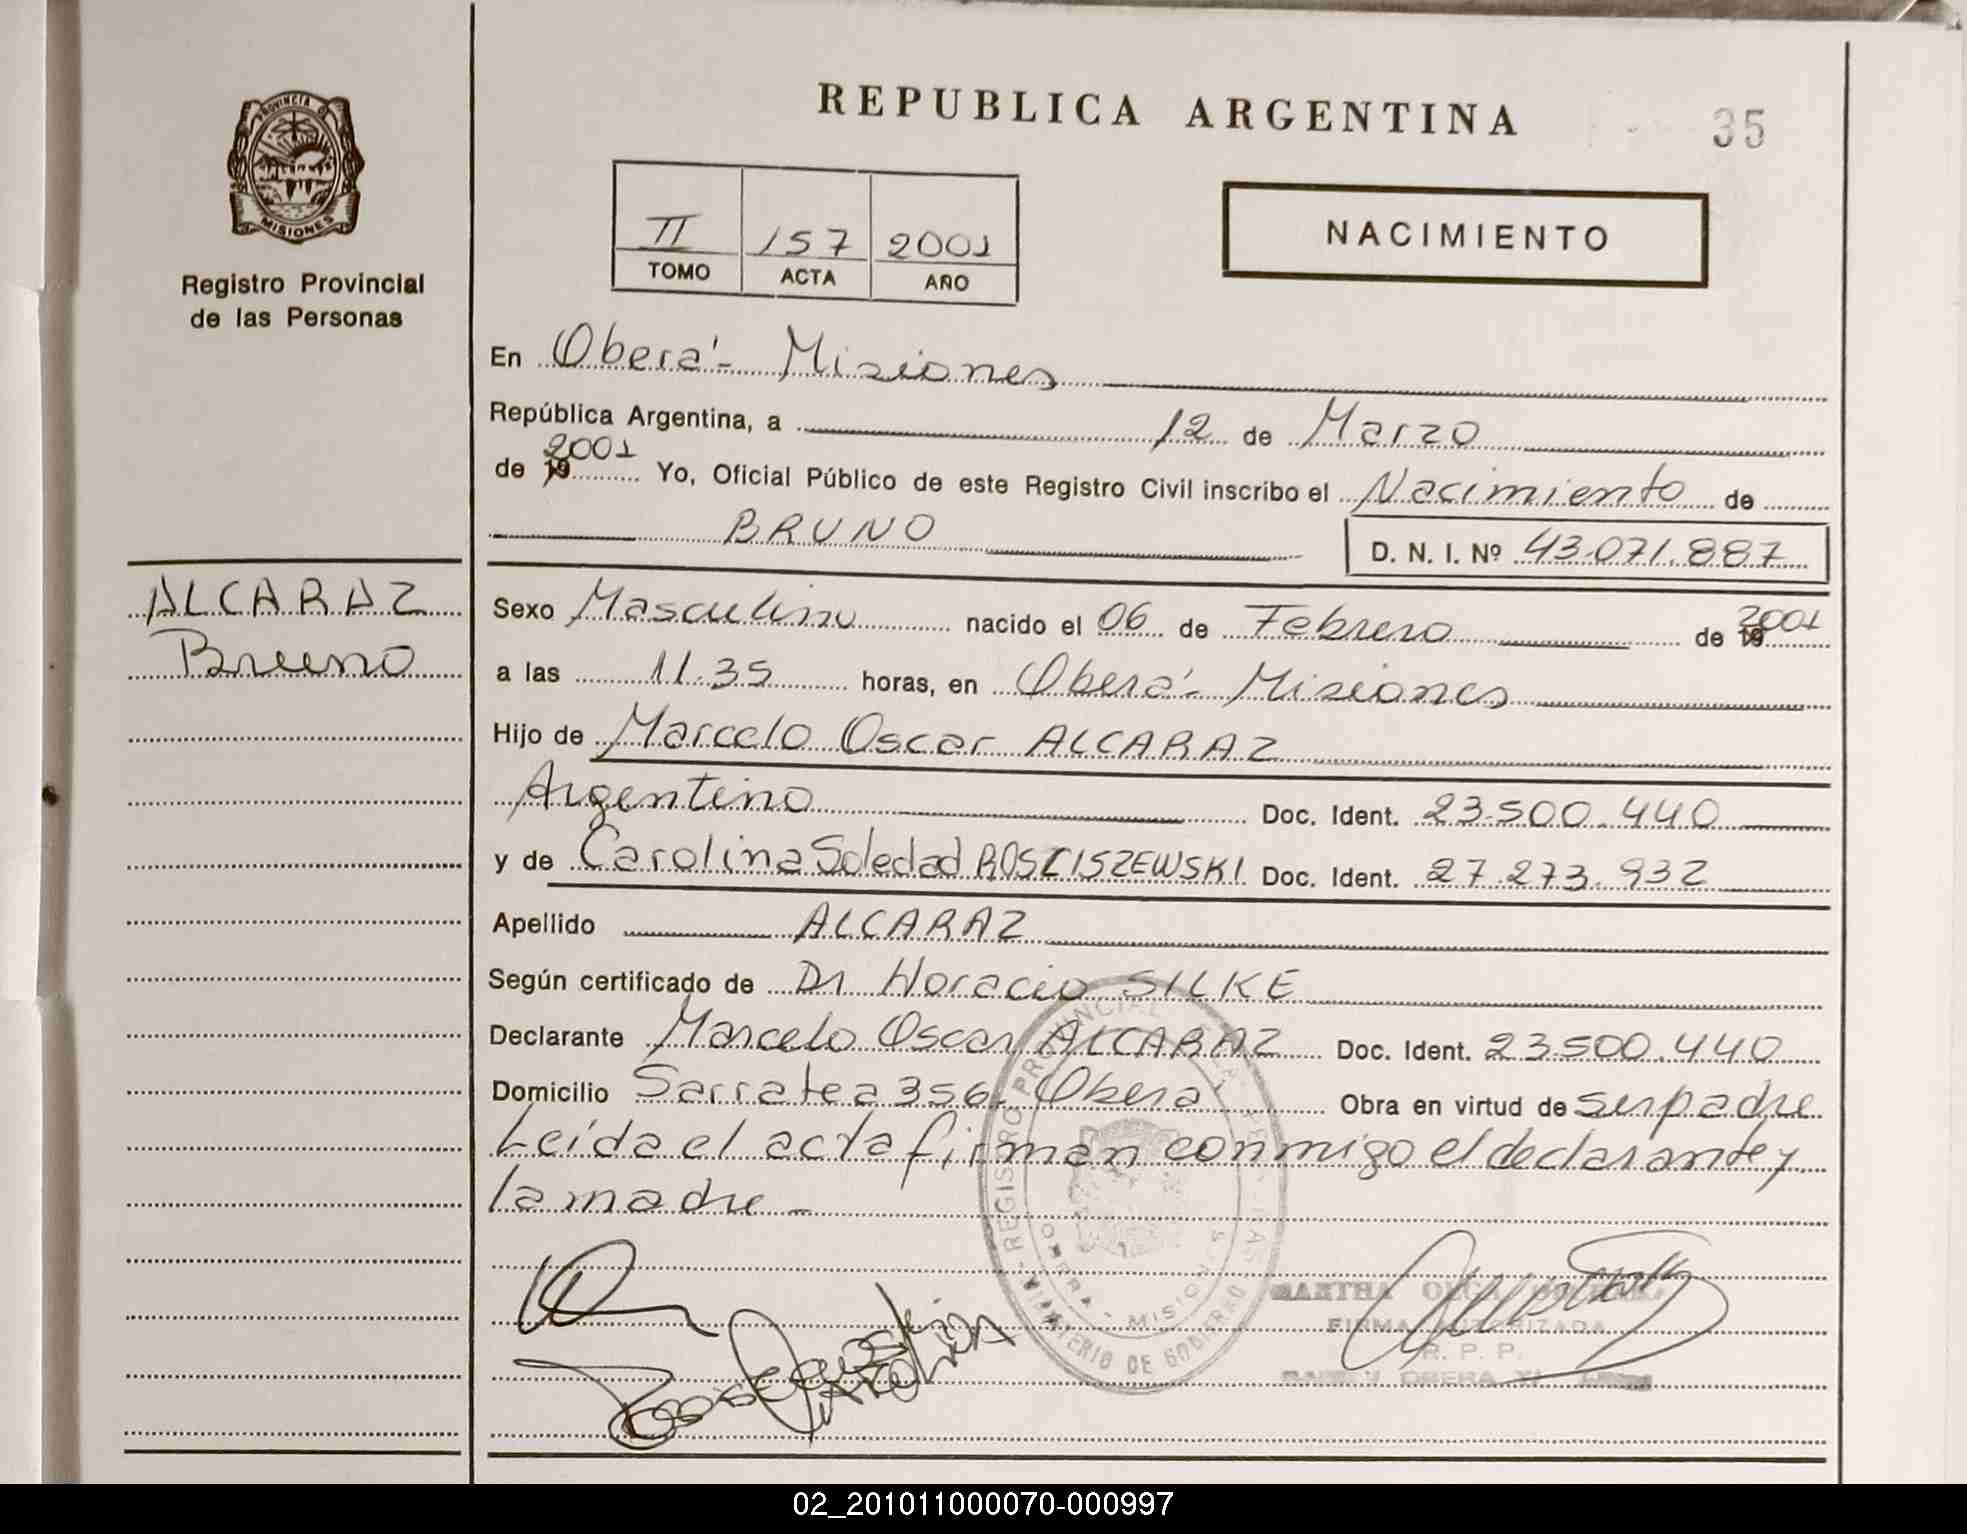 REPUBLICA ARGENTINA
35
PROVINCIA DE
MISIONES
Registro Provincial
de las Personas
II 157 2001
TOMO ACTA AÑO
NACIMIENTO
En Oberá - Misiones
República Argentina, a 12 de Marzo
de 19 2001 Yo, Oficial Público de este Registro Civil inscribo el Nacimiento de
BRUNO D. N. I. Nº 43.071.887
ALCARAZ
Bruno
Sexo Masculino nacido el 06 de Febrero de 19 2001
a las 11.35 horas, en Oberá - Misiones
Hijo de Marcelo Oscar ALCARAZ
Argentino Doc. Ident. 23.500.440
y de Carolina Soledad ROSCISZEWSKI Doc. Ident. 27.273.932
Apellido ALCARAZ
Según certificado de Dr Horacio SILKE
Declarante Marcelo Oscar ALCARAZ Doc. Ident. 23.500.440
Domicilio Sarratea 356. Oberá Obra en virtud de ser padre
Leida el acta firman conmigo el declarante y
la madre -
REGISTRO PROVINCIAL DE LAS PERSONAS
MINISTERIO DE GOBIERNO
OBERA - MISIONES
MARTHA OLGA
FIRMA AUTORIZADA
R. P. P.
OBERA
CAROLINA
02_201011000070-000997